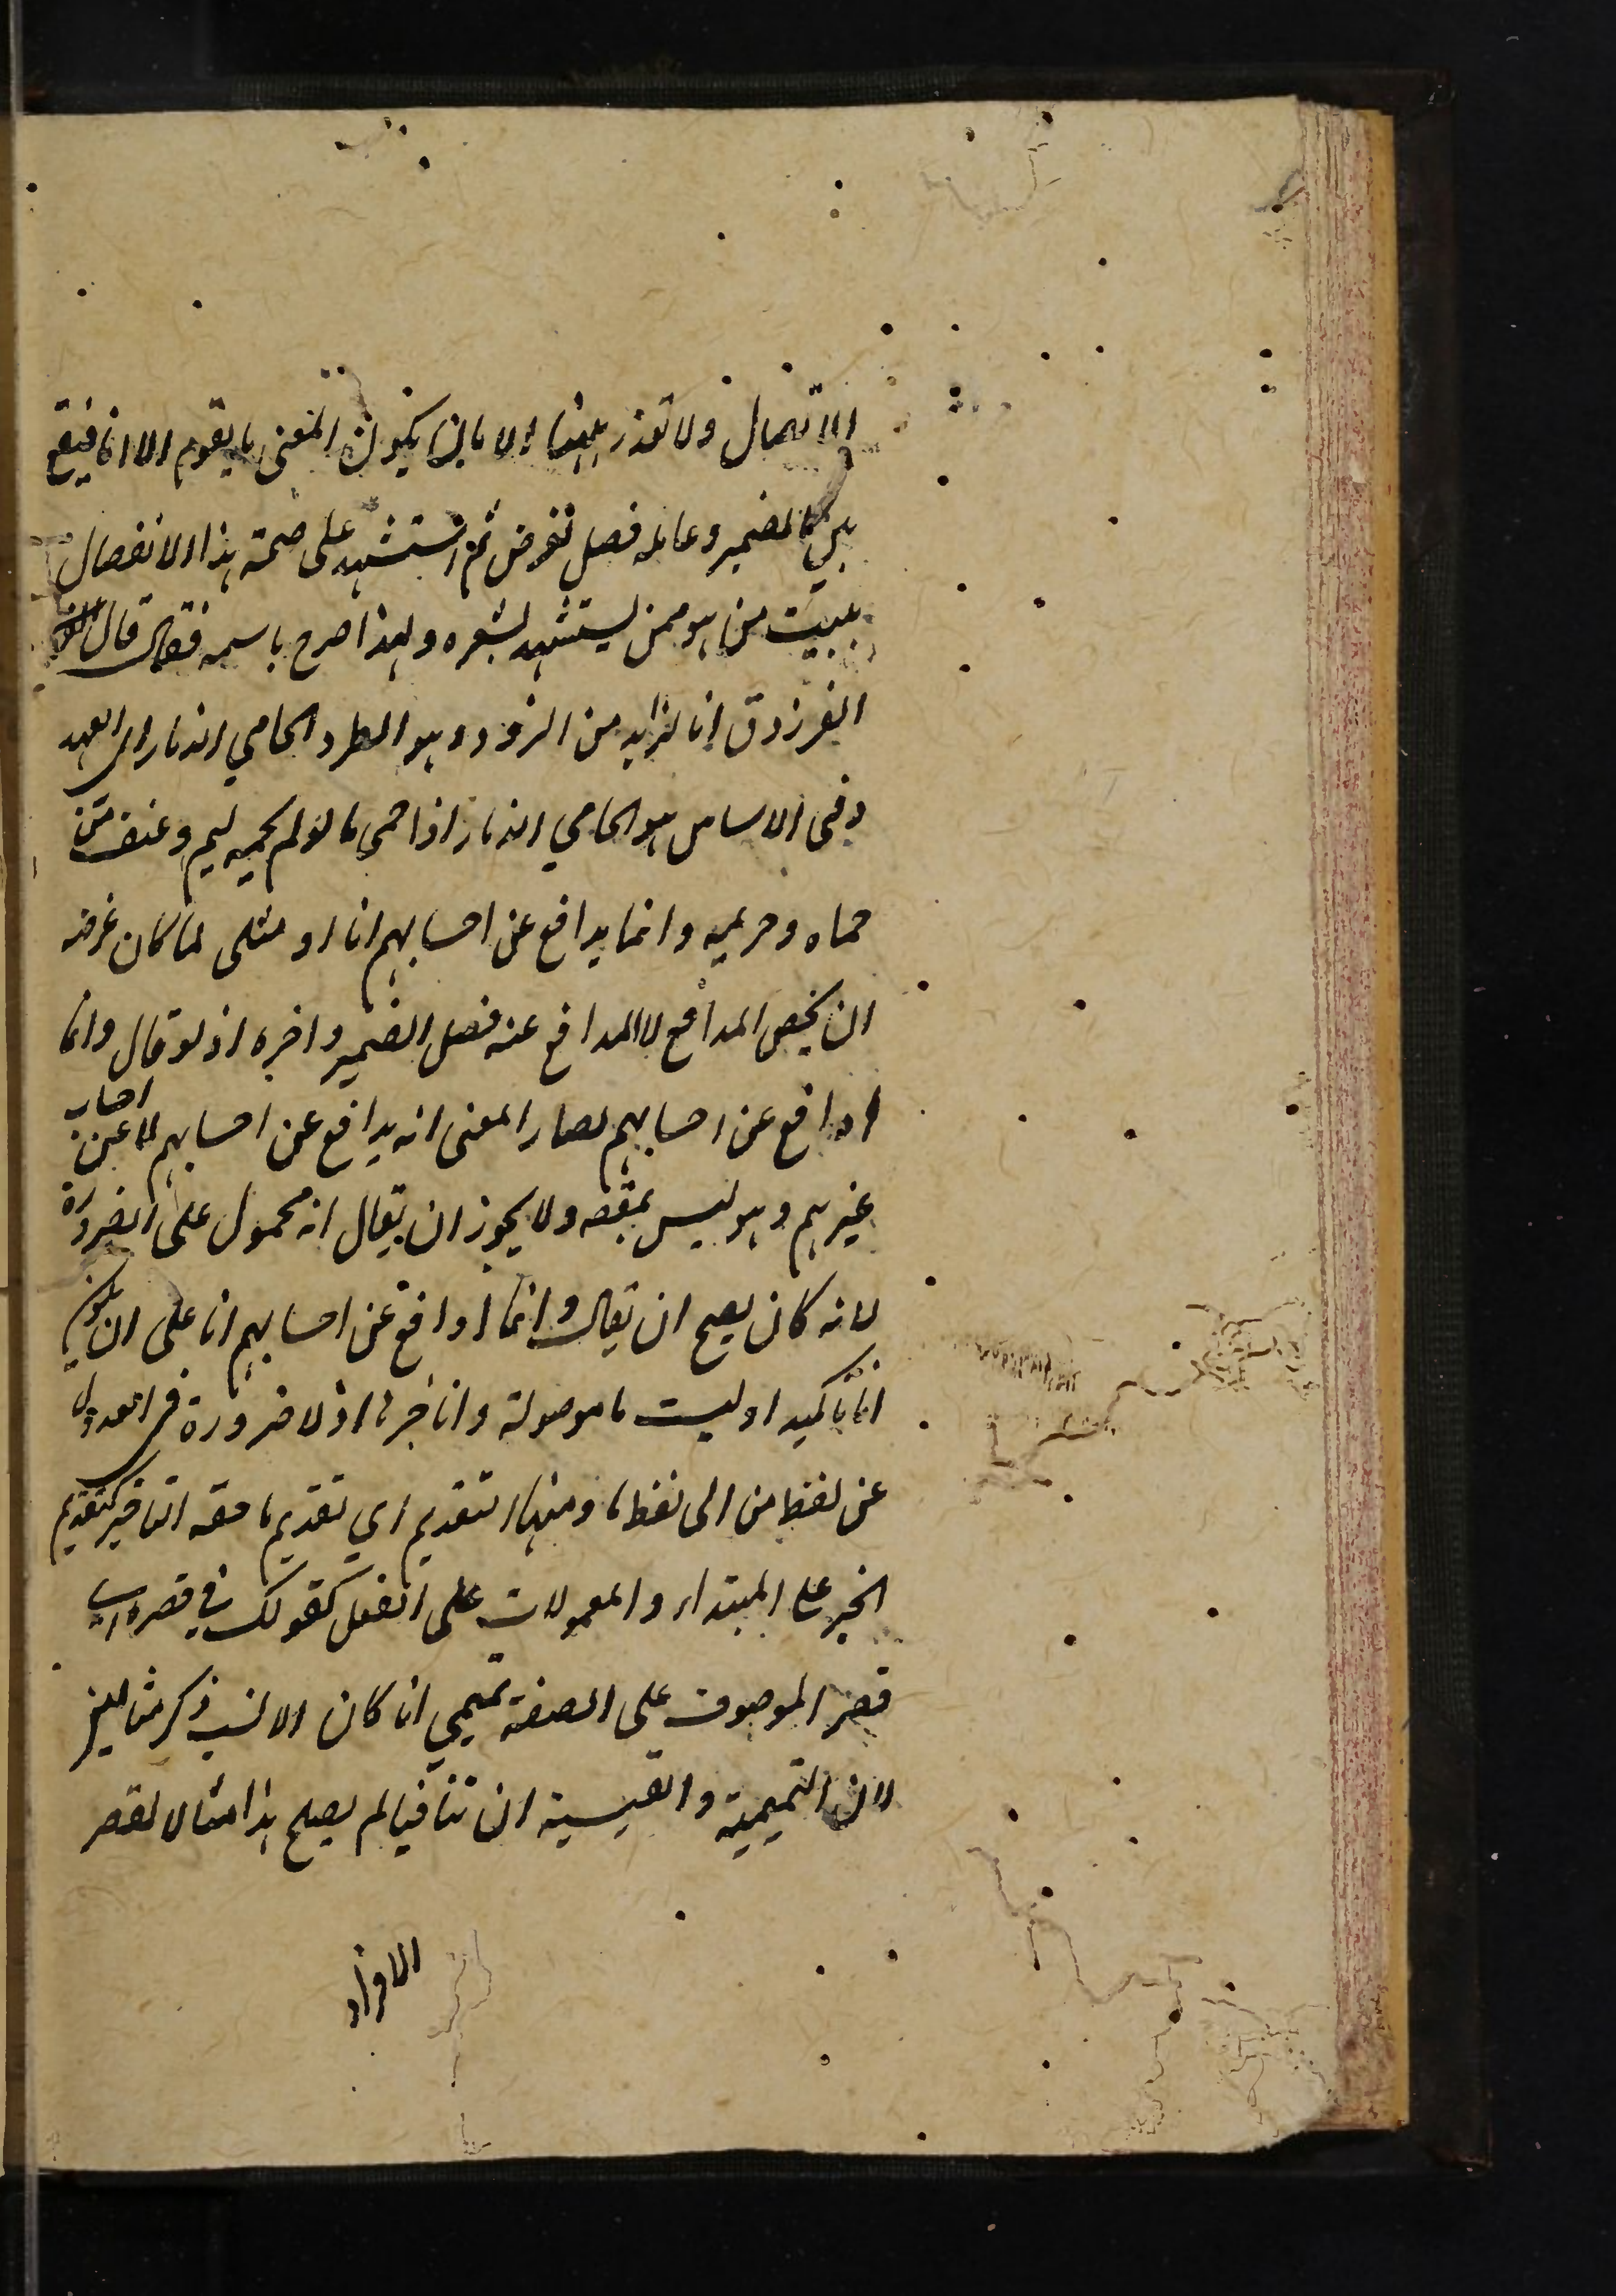 الاتصال ولا تعذر ههنا الا بان يكون المعنى ما يقوم الا انا فيقع
بين الضمير وعامله فصل لغرض ثم استشهد على صحة هذا الانفصال
ببيت من هو ممن يستشهد بشعره ولهذا صرح باسمه فقال قال
الفرزدق انا الذايد من الذود وهو الطرد الحامي الذمار اى العهد
وفي الاساس هو الحامي الذمار اذا حمى ما لو لم يحمه ليم وعنف من
حماه وحريمه وانما يدافع عن احسابهم انا او مثلى لما كان غرضه
ان يخص المدافع لا المدافع عنه فصل الضمير واخره اذ لو قال وانما
ادافع عن احسابهم لصار المعنى انه يدافع عن احسابهم لا عن احساب
غيرهم وهو ليس بمقصه ولا يجوز ان يقال انه محمول على الضرورة
لانه كان يصح ان يقال وانما ادافع عن احسابهم انا على ان يكون
انا تاكيد او ليست ما موصولة وانا خبرها اذ لا ضرورة في العدول
عن لفظ من الى لفظ ما ومنها التقديم اي تقديم ما حقه التاخير كتقديم
الخبر على المبتداء والمعمولات على الفعل كقولك في قصره اى
قصر الموصوف على الصفة تميمي انا كان الانسب ذكر مثالين
لان التميمية والقيسية ان تنافيا لم يصلح هذا مثالا لقصر
الافراد